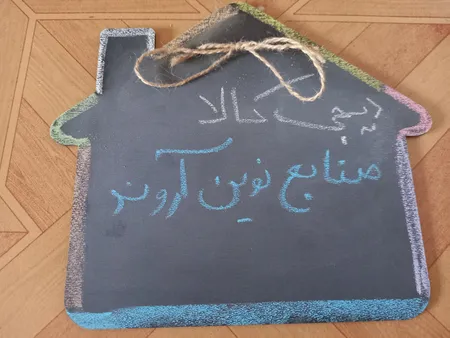 دیجی کالا
صنایع نوین آروند